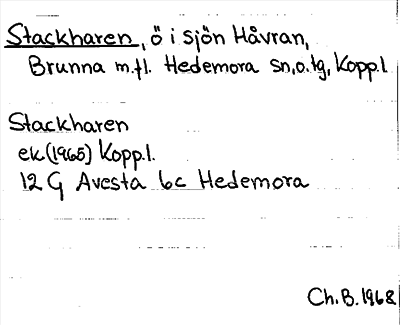 Stackharen, ö i sjön Håvran,
Brunna m.fl. Hedemora sn, o. tg, Kopp.l
Stackharen
ek (1965) Kopp.l.
12 G Avesta 6c Hedemora
Ch.B. 1968